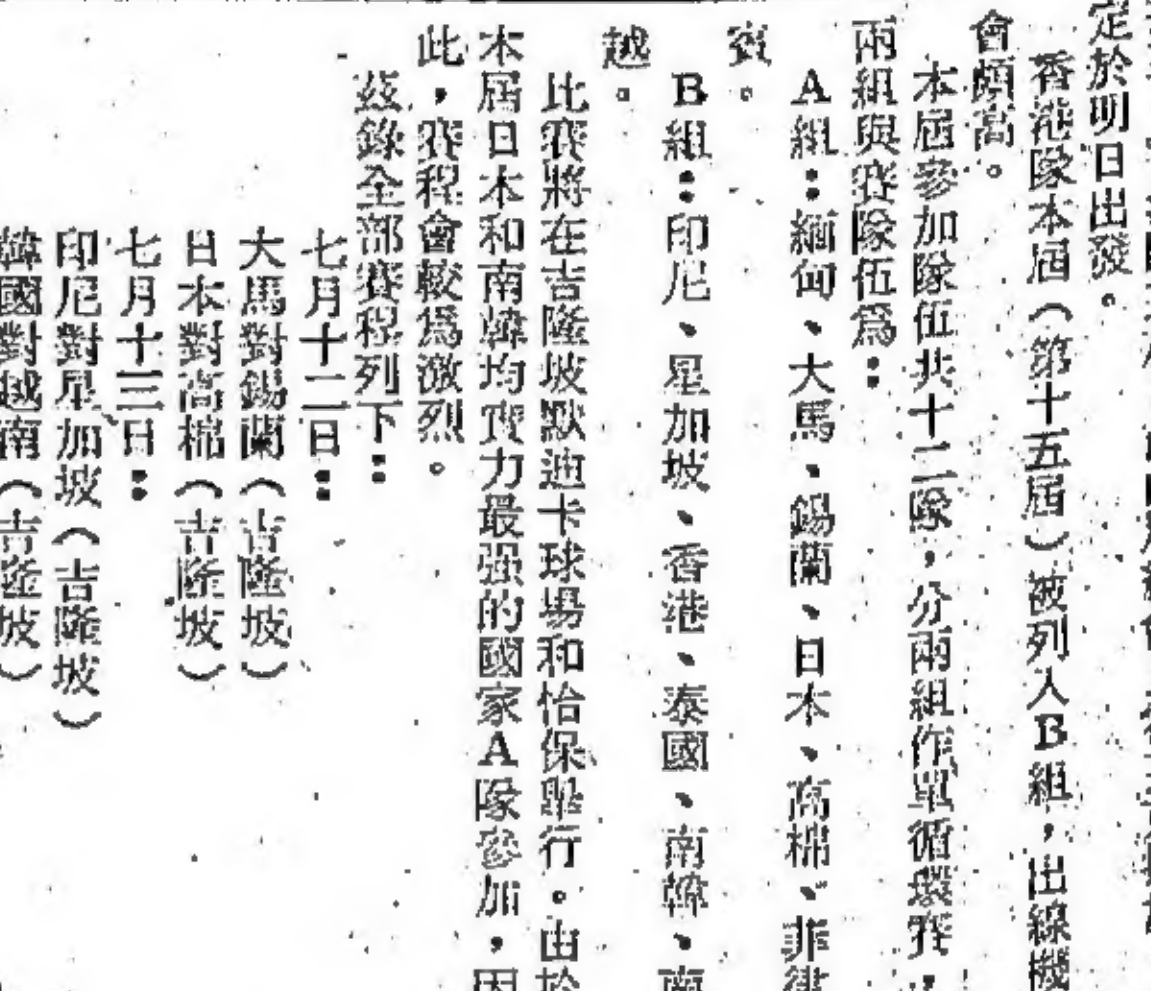 定於明日出發。
香港隊本屆（第十五屆）被列入B組，出線機
會頗高。
本屆參加隊伍共十二隊，分兩組作單循環賽，
兩組與賽隊伍爲：
A組：緬甸、大馬、錫蘭、日本、高棉、菲律
賓。
B組：印尼、星加坡、香港、泰國、南韓、南
越。
比賽將在吉隆坡默迪卡球場和怡保舉行。由於
本屆日本和南韓均實力最强的國家A隊參加，因
此，賽程會較爲激烈。
茲錄全部賽程列下：
七月十二日：
大馬對錫蘭（吉隆坡）
日本對高棉（吉隆坡）
七月十三日：
印尼對星加坡（吉隆坡）
韓國對越南（吉隆坡）